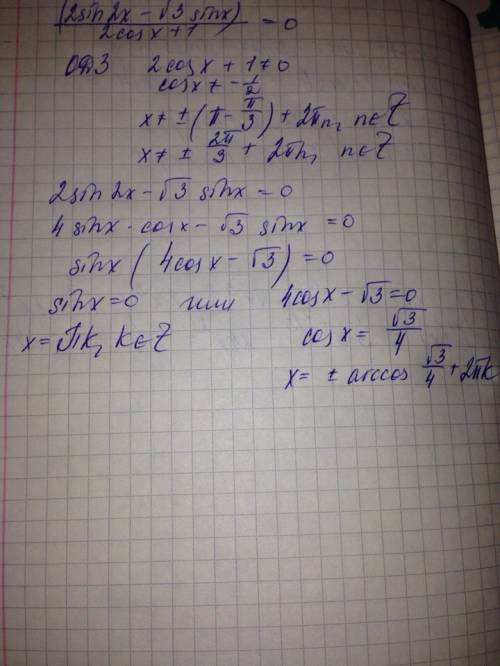 (2sin2x - √3 sinx) / (2cosx + 1) = 0
ОДЗ 2cosx + 1 ≠ 0
cosx ≠ -1/2
x ≠ ±(π - π/3) + 2πn, n∈Z
x ≠ ± 2π/3 + 2πn, n∈Z
2sin2x - √3 sinx = 0
4 sinx · cosx - √3 sinx = 0
sinx (4cosx - √3) = 0
sinx = 0 или 4cosx - √3 = 0
x = πk, k∈Z cosx = √3/4
x = ± arccos √3/4 + 2πk